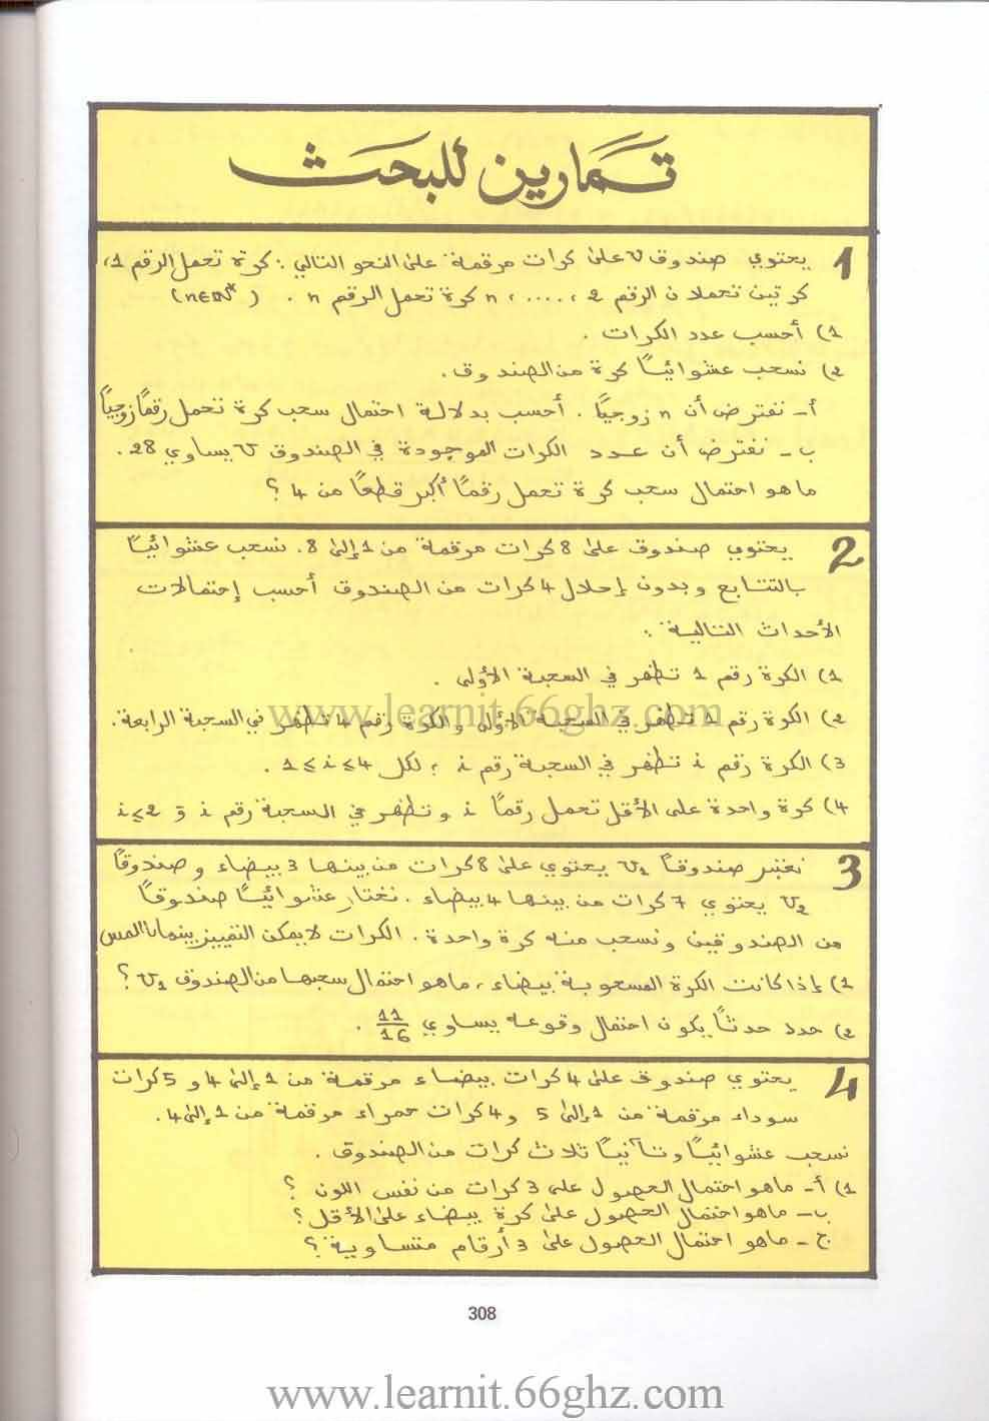 تمارين للبحث
1 يحتوي صندوق U على كرات مرقمة على النحو التالي : كرة تحمل الرقم 1،
كرتين تحملان الرقم 2 ، .... ، n كرة تحمل الرقم n . (n∈ℕ*)
1) أحسب عدد الكرات .
2) نسحب عشوائيًا كرة من الصندوق .
أ- نفترض أن n زوجيًا . أحسب بدلالة احتمال سحب كرة تحمل رقمًا زوجيًا
ب - نفترض أن عدد الكرات الموجودة في الصندوق U يساوي 28 .
ماهو احتمال سحب كرة تحمل رقمًا أكبر قطعًا من 4 ؟
2 يحتوي صندوق على 8 كرات مرقمة من 1 إلى 8 . نسحب عشوائيًا
بالتتابع وبدون إحلال 4 كرات من الصندوق أحسب إحتمالات
الأحداث التالية :
1) الكرة رقم 1 تظهر في السحبة الأولى .
2) الكرة رقم 1 تظهر في السحبة الأولى والكرة رقم 4 تظهر في السحبة الرابعة .
3) الكرة رقم i تظهر في السحبة رقم i ؛ لكل 1≤i≤4 .
4) كرة واحدة على الأقل تحمل رقمًا i وتظهر في السحبة رقم i و i≤2
3 نعتبر صندوقًا U₁ يحتوي على 8 كرات من بينها 3 بيضاء وصندوقًا
U₂ يحتوي 7 كرات من بينها 4 بيضاء . نختار عشوائيًا صندوقًا
من الصندوقين ونسحب منه كرة واحدة . الكرات لايمكن التمييز بينها باللمس
1) إذا كانت الكرة المسحوبة بيضاء ، ماهو احتمال سحبها من الصندوق U₁ ؟
2) حدد حدثًا يكون احتمال وقوعه يساوي 11/16 .
4 يحتوي صندوق على 4 كرات بيضاء مرقمة من 1 إلى 4 و 5 كرات
سوداء مرقمة من 1 إلى 5 و 4 كرات حمراء مرقمة من 1 إلى 4 .
نسحب عشوائيًا وتآنيًا ثلاث كرات من الصندوق .
1) أ- ماهو احتمال الحصول على 3 كرات من نفس اللون ؟
ب- ماهو احتمال الحصول على كرة بيضاء على الأقل ؟
ج - ماهو احتمال الحصول على 3 أرقام متساوية ؟
308
www.learnit.66ghz.com
www.learnit.66ghz.com